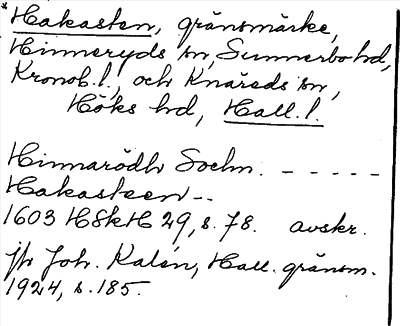 *Hakasten, gränsmärke,
Hinneryds sn, Sunnerbo hd,
Kronob. l., och Knäreds sn,
Höks hd, Hall. l.
Hinnarödh Sochn. - - - - -
Hakasteen - -
1603 HSkH 29, s. 78. avskr.
jfr Joh. Kalén, Hall. gränsm.
1924, s. 185.